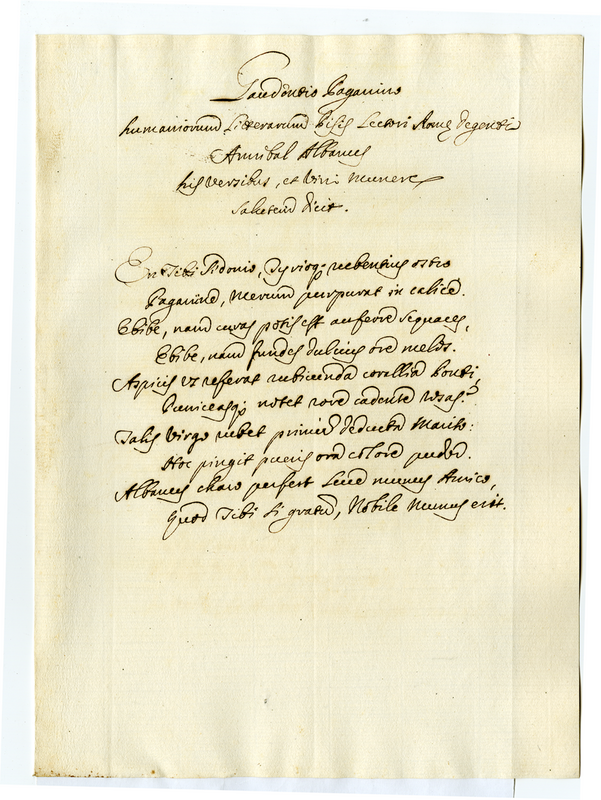 Gaudentio Paganino
humaniorum Litterarum Pisis Lectori Romę degenti
Annibal Albanus
his versibus, et Vini Munere
salutem dicit.
En Tibi Sidonio, Tyrioq; rubentius ostro
Paganine, Merum purpurat in calice.
Ebibe, nam curas potis est auferre sequaces,
Ebibe, nam fundes dulcius ore melos.
Aspicis ut referat rubicunda corallia Ponti,
Puniceasq; notet rore cadente rosas?
Talis Virgo rubet primùm deducta Marito:
Hoc pingit pueris ora colore pudor.
Albanus charo perfert Leue munus Amico,
Quod Tibi si gratum, Nobile Munus erit.